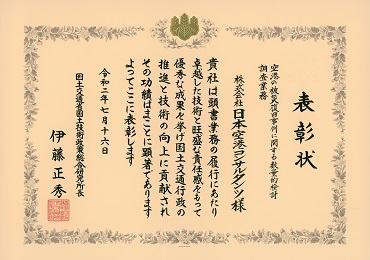 表彰状
空港の被災復旧事例に関する数量的検討
調査業務
株式会社日本空港コンサルタンツ様
貴社は頭書業務の履行にあたり
卓越した技術と旺盛な責任感をもって
優秀な成果を挙げ国土交通行政の
推進と技術の向上に貢献され
その功績はまことに顕著であります
よってここに表彰します
令和二年七月十六日
国土交通省国土技術政策総合研究所長
伊藤正秀